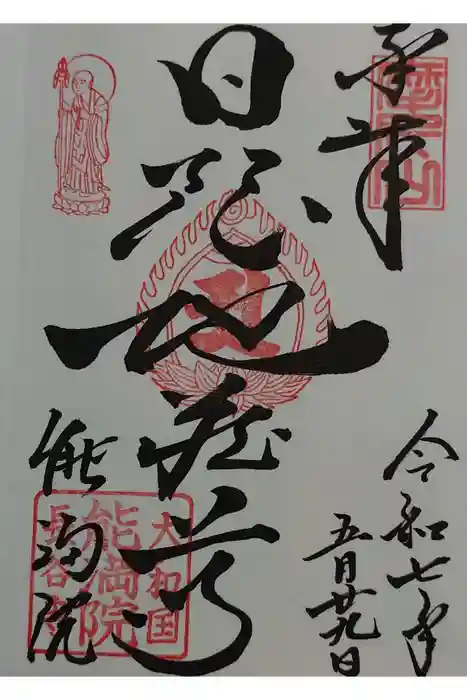 奉拝
令和七年
五月廿九日
日限地蔵尊
能満院
大和国
能満院
長谷寺